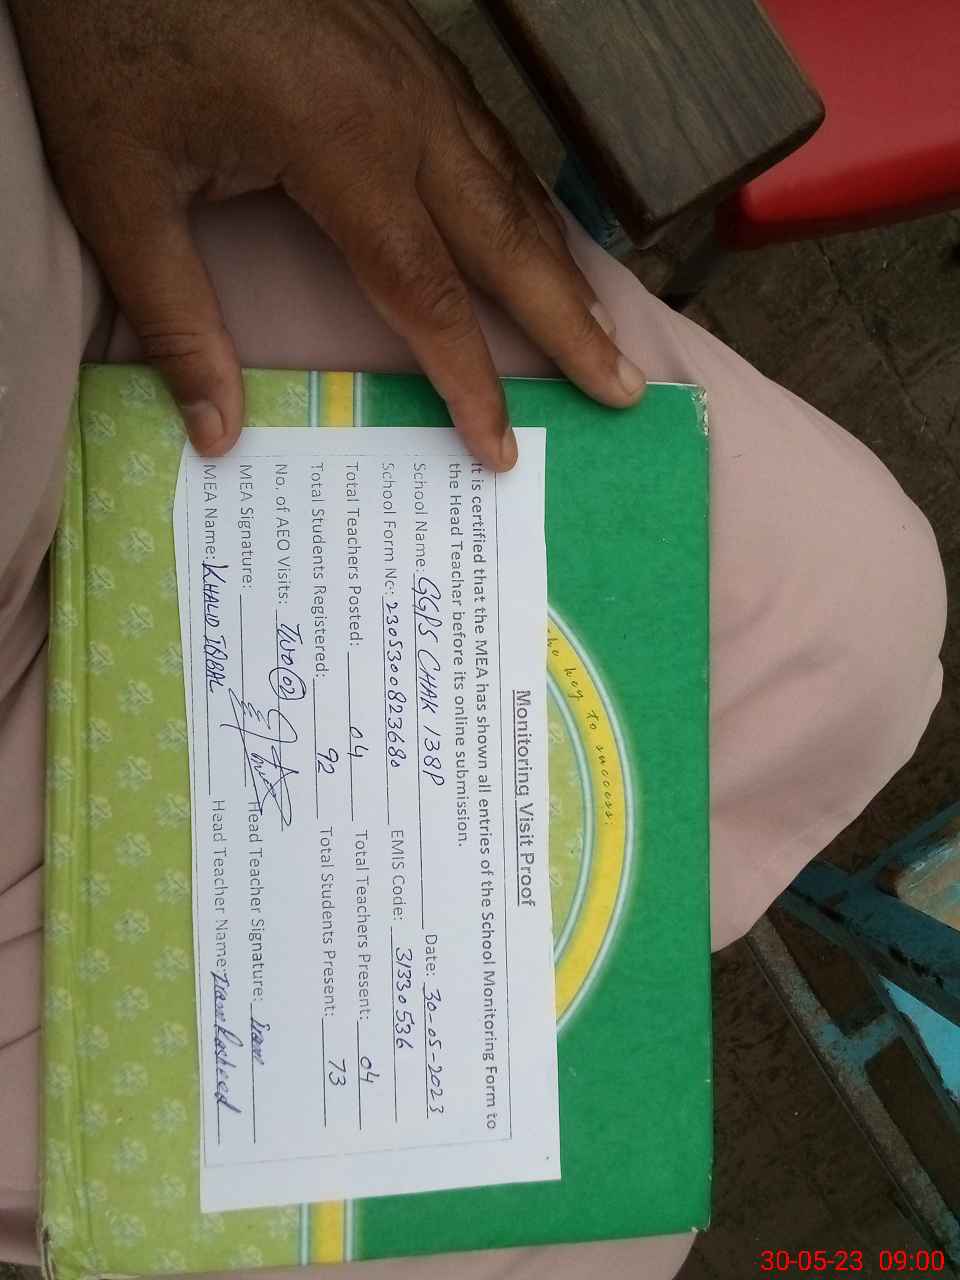 the key to success:
Monitoring Visit Proof
It is certified that the MEA has shown all entries of the School Monitoring Form to
the Head Teacher before its online submission.
School Name: GGPS CHAK 138P Date: 30-05-2023
School Form No: 2305300823680 EMIS Code: 31330536
Total Teachers Posted: 04 Total Teachers Present: 04
Total Students Registered: 92 Total Students Present: 73
No. of AEO Visits: Two (02)
MEA Signature: Head Teacher Signature:
MEA Name: KHALID IQBAL Head Teacher Name: Rasheed
30-05-23 09:00